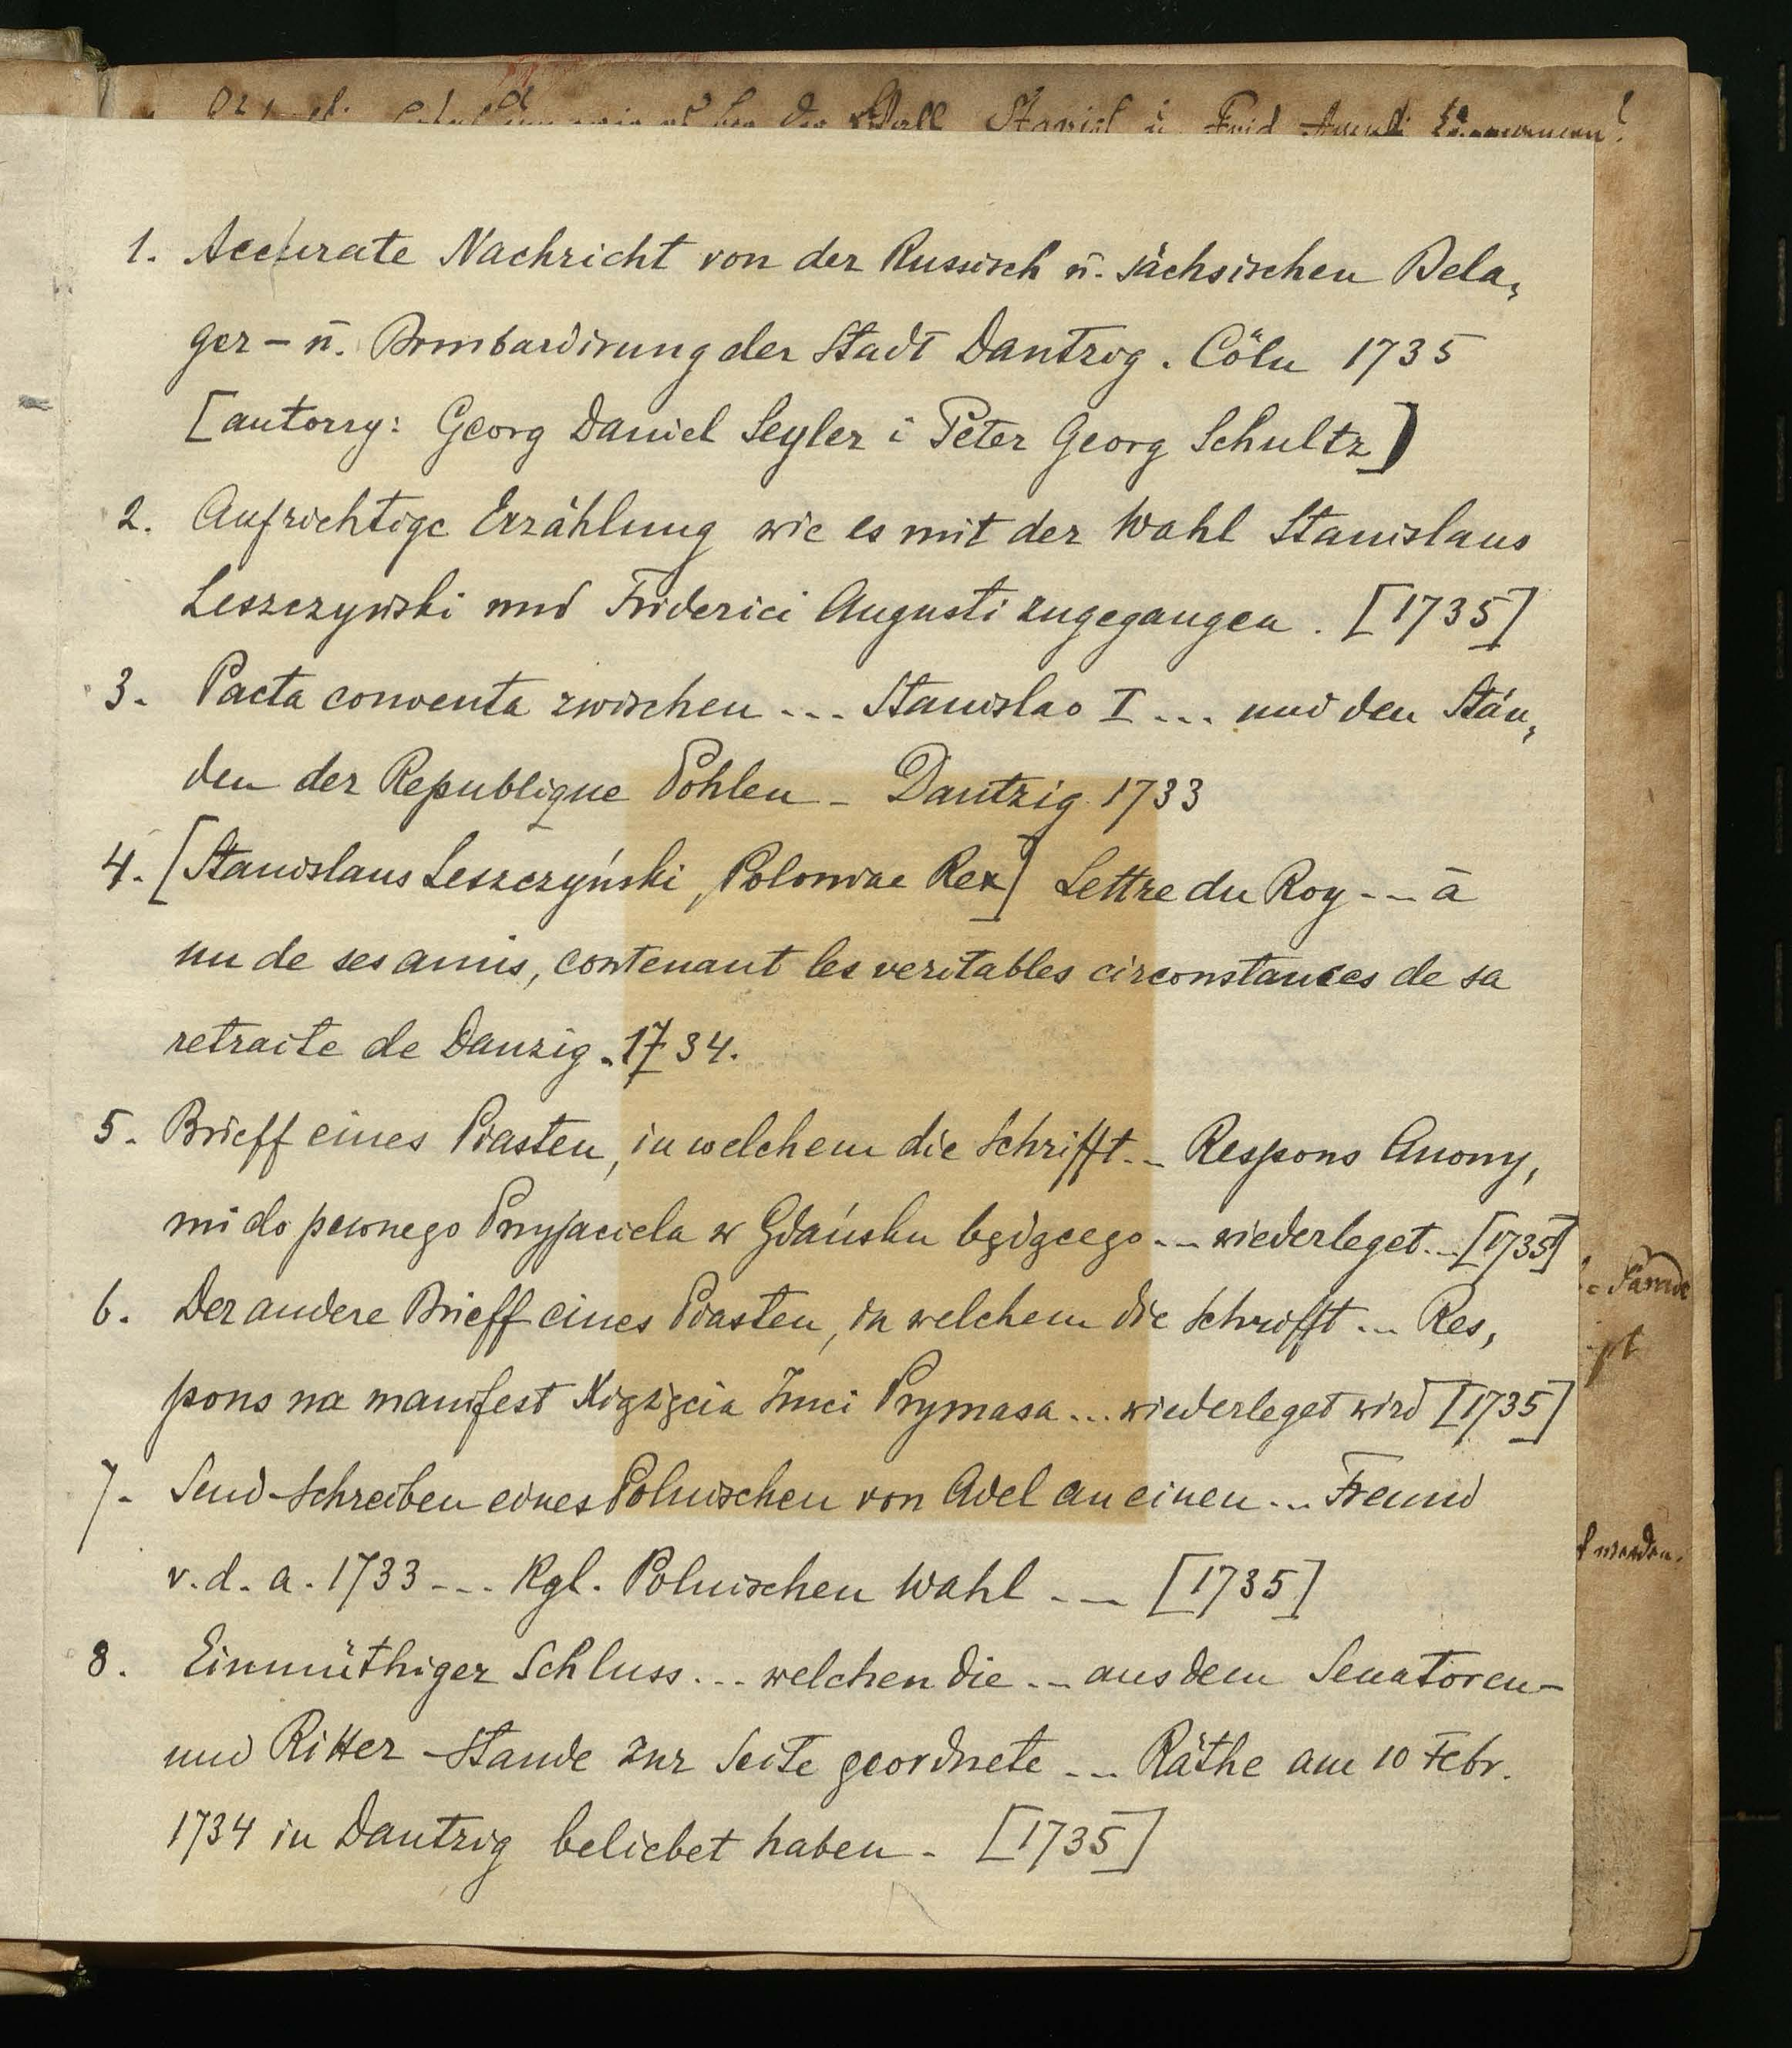 1. Accurate Nachricht von der Russisch u. sächsischen Bela,
ger - u. Bombardirung der Stadt Dantzig. Cöln 1735
[autorzy: Georg Daniel Seyler i Peter Georg Schultz]
2. Aufrichtige Erzählung wie es mit der Wahl Stanislaus
Leszczynski und Friderici Augusti zugegangen. [1735]
3. Pacta conventa zwischen ... Stanislao I ... und den Stän,
den der Republique Pohlen - Dantzig 1733
4. [Stanislaus Leszczyński, Poloniae Rex] Lettre du Roy ... à
un de ses amis, contenant les veritables circonstances de sa
retraite de Danzig. 1734.
5. Brieff eines Piasten, in welchem die Schrifft ... Respons Anony,
mi do pewnego Przyjaciela w Gdańsku będącego ... wiederleget ... [1735]
6. Der andere Brieff eines Piasten, in welchem die Schrifft ... Res,
pons na manifest Xiążęcia Jmci Prymasa ... wiederleget wird [1735]
7. Send-Schreiben eines Polnischen von Adel an einen ... Freund
v. d. a. 1733 ... Kgl. Polnischen Wahl ... [1735]
8. Einmüthiger Schluss ... welchen die ... aus dem Senatoren-
und Ritter-Stande zur Seite geordnete ... Räthe am 10 Febr.
1734 in Dantzig beliebet haben. [1735]